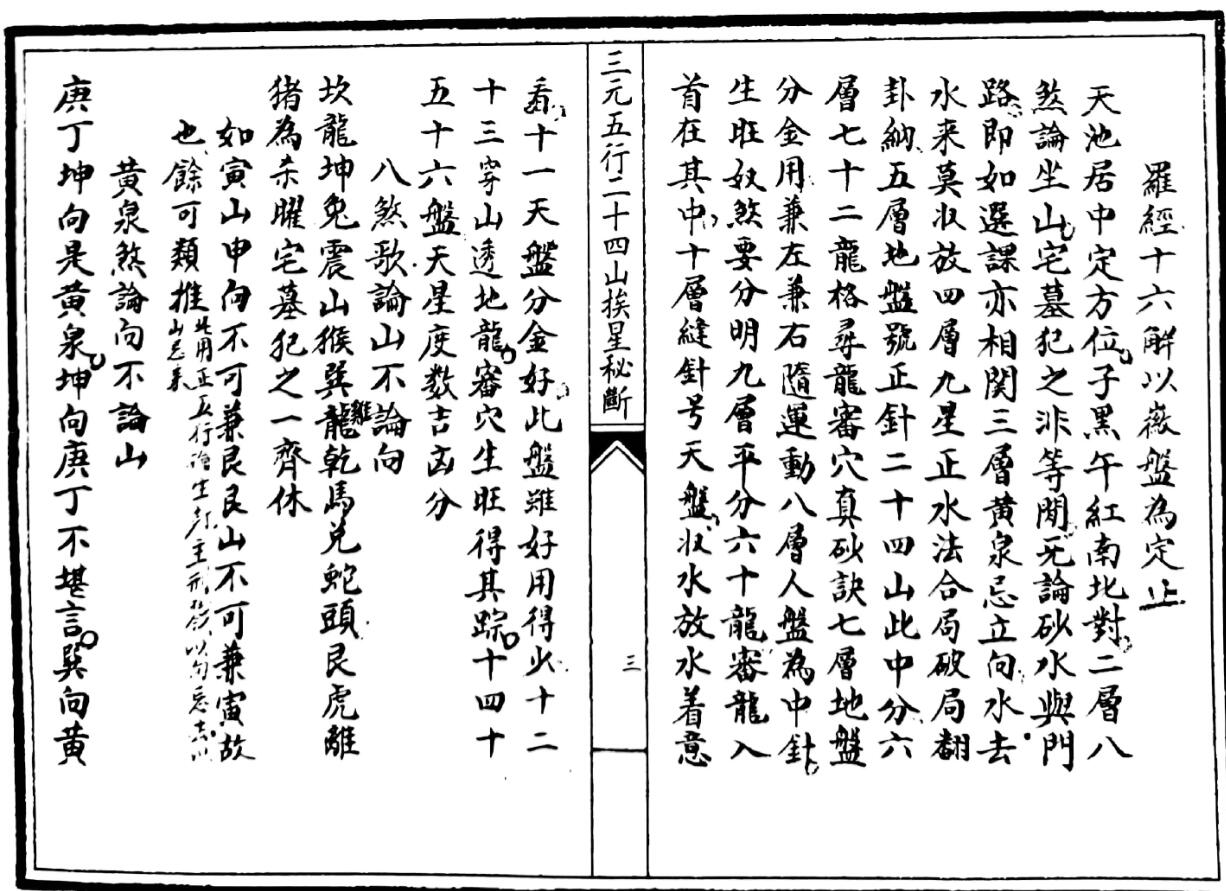 羅經十六解以薇盤為定止
天池居中定方位子黑午紅南北對二層八
煞論坐山宅墓犯之非等閑无論砂水與門
路即如選課亦相関三層黄泉忌立向水去
水来莫收放四層九星正水法合局破局翻
卦納五層地盤號正針二十四山此中分六
層七十二龍格尋龍審穴真砂訣七層地盤
分金用兼左兼右隨運動八層人盤為中針
生旺奴煞要分明九層平分六十龍審龍入
首在其中十層縫針号天盤收水放水着意
三元五行二十四山挨星秘斷
三
看十一天盤分金好此盤雖好用得少十二
十三穿山透地龍審穴生旺得其踪十四十
五十六盤天星度数吉凶分
八煞歌論山不論向
坎龍坤兔震山猴巽雞乾馬兑蛇頭艮虎離
猪為杀曜宅墓犯之一齊休
如寅山申向不可兼艮艮山不可兼寅故
也餘可類推此用正五行論生剋主刑
山忌來
黄泉煞論向不論山
庚丁坤向是黄泉坤向庚丁不堪言巽向黄